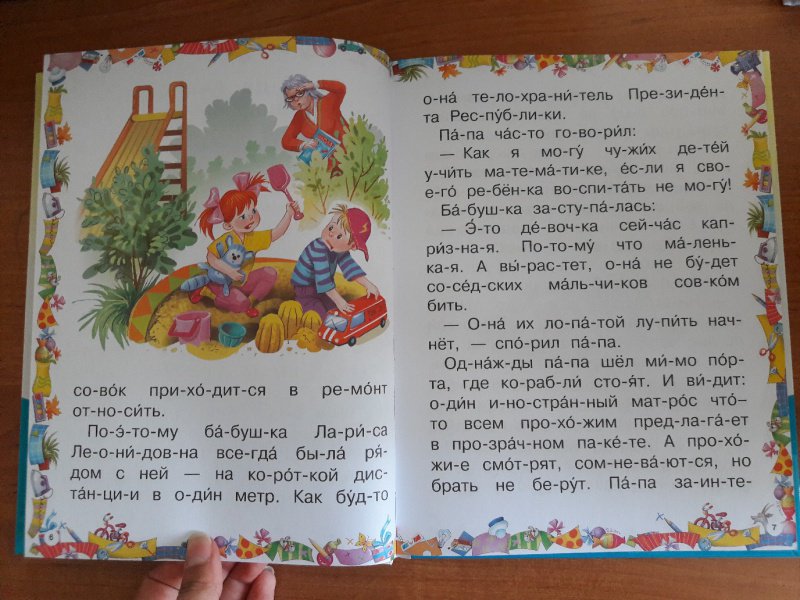 со-во́к при-хо́-дит-ся в ре-мо́нт
от-но-си́ть.
По-э́-то-му ба́-буш-ка Ла-ри́-са
Ле-о-ни́-дов-на все-гда́ бы-ла́ ря́-
дом с ней — на ко-ро́т-кой дис-
та́н-ци-и в о-ди́н метр. Как бу́д-то
6
о-на́ те-ло-хра-ни́-тель Пре-зи-де́н-
та Рес-пу́б-ли-ки.
Па́-па ча́с-то го-во-ри́л:
— Как я мо-гу́ чу-жи́х де-те́й
у-чи́ть ма-те-ма́-ти-ке, е́с-ли я сво-
е-го́ ре-бён-ка вос-пи-та́ть не мо-гу́!
Ба́-буш-ка за-сту-па́-лась:
— Э́-то де́-воч-ка сей-ча́с кап-
ри́з-на-я. По-то-му́ что ма́-лень-
ка-я. А вы́-рас-тет, о-на́ не бу́-дет
со-се́д-ских ма́ль-чи-ков сов-ко́м
бить.
— О-на́ их ло-па́-той лу-пи́ть нач-
нёт, — спо́-рил па́-па.
Од-на́ж-ды па́-па шёл ми́-мо по́р-
та, где ко-раб-ли́ сто-я́т. И ви́-дит:
о-ди́н и-но-стра́н-ный мат-ро́с что́–
то всем про-хо́-жим пред-ла-га́-ет
в про-зра́ч-ном па-ке́-те. А про-хо́-
жи-е смо́т-рят, сом-не-ва́-ют-ся, но
брать не бе-ру́т. Па́-па за-ин-те-
7